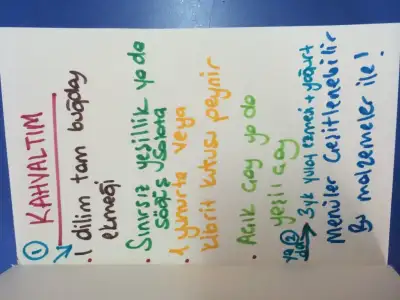 ① KAHVALTIM
. 1 dilim tam buğday
ekmeği
. Sınırsız yeşillik ya da
söğüş salata
. 1 yumurta veya
kibrit kutusu peynir
. Açık çay ya da
yeşil çay
ya da ② → 3 yk yulaf ezmesi + yoğurt
Menüler Çeşitlenebilir
Bu malzemeler ile!